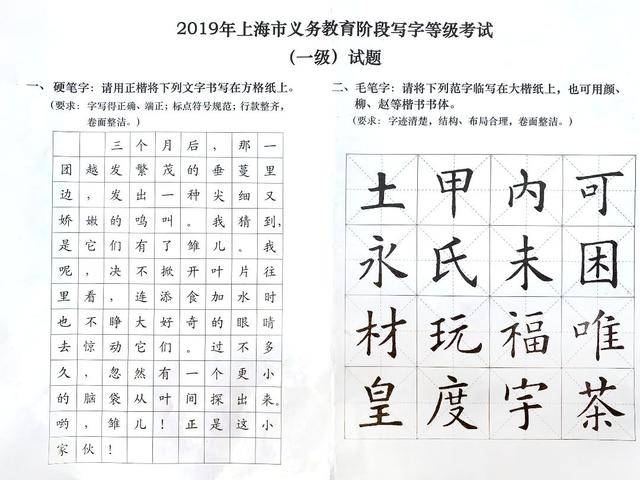 2019年上海市义务教育阶段写字等级考试
（一级）试题
一、硬笔字：请用正楷将下列文字书写在方格纸上。
（要求：字写得正确、端正；标点符号规范；行款整齐，
卷面整洁。）
三个月后，那一
团越发繁茂的垂蔓里
边，发出一种尖细又
娇嫩的鸣叫。我猜到，
是它们有了雏儿。我
呢，决不掀开叶片往
里看，连添食加水时
也不睁大好奇的眼睛
去惊动它们。过不多
久，忽然有一个更小
的脑袋从叶间探出来。
哟，雏儿！正是这小
家伙！
二、毛笔字：请将下列范字临写在大楷纸上，也可用颜、
柳、赵等楷书书体。
（要求：字迹清楚，结构、布局合理，卷面整洁。）
土甲内可
永氏未困
材玩福唯
皇度字茶